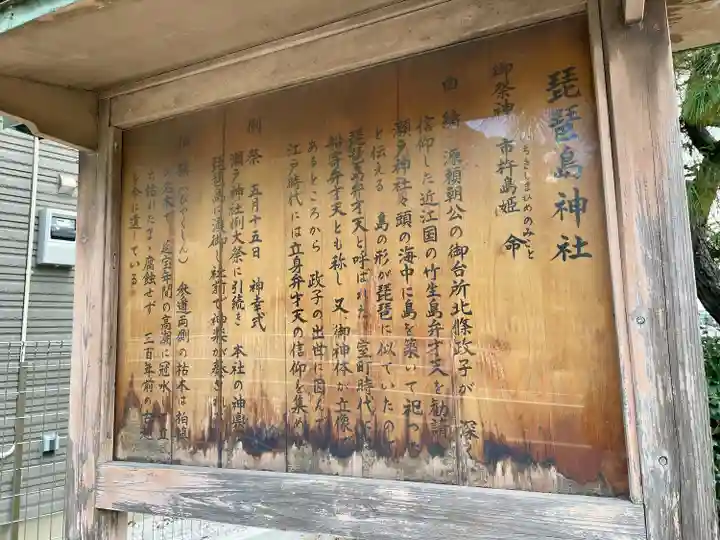 琵琶島神社
御祭神 市杵島姫命
いちきしまひめのみこと
由緒 源頼朝公の御台所北條政子が 深く
信仰した近江国の竹生島弁才天を勧請
瀬戸神社々頭の海中に島を築いて祀った
と伝える 島の形が琵琶に似ていたので
琵琶島弁才天と呼ばれた 室町時代に
船寄弁才天とも称し 又 御神体が立像で
あるところから 政子の出世に因んで
江戸時代には立身弁才天の信仰を集め
例祭 五月十五日 神幸式
瀬戸神社例大祭に引続き 本社の神輿
琵琶島に渡御し社前で神楽が奏され
柏槇(びゃくしん) 参道両側の枯木は柏槇
の古木で 延宝年間の高潮に冠水し 立
ち枯れたまゝ腐蝕せず 三百年前の
を今に遺している